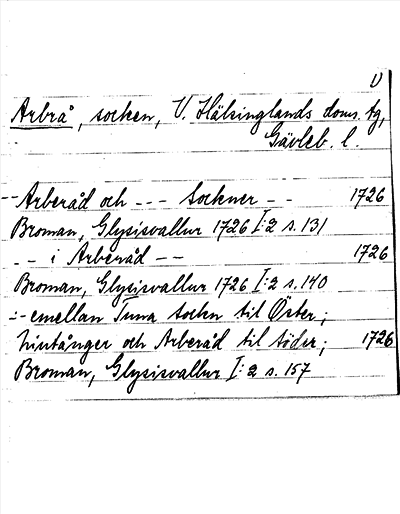 U
Arbrå, socken, V. Hälsinglands doms. tg,
Gävleb. l.
-- Arberåd och --- Sockner -- 1726
Broman, Glysisvallur 1726 I:2 s. 131
-- i Arberåd -- 1726
Broman, Glysisvallur 1726 I:2 s. 140
:- emellan Tuna socken til Öster;
hintånger och Arberåd til söder; 1726
Broman, Glysisvallur I:2 s. 157